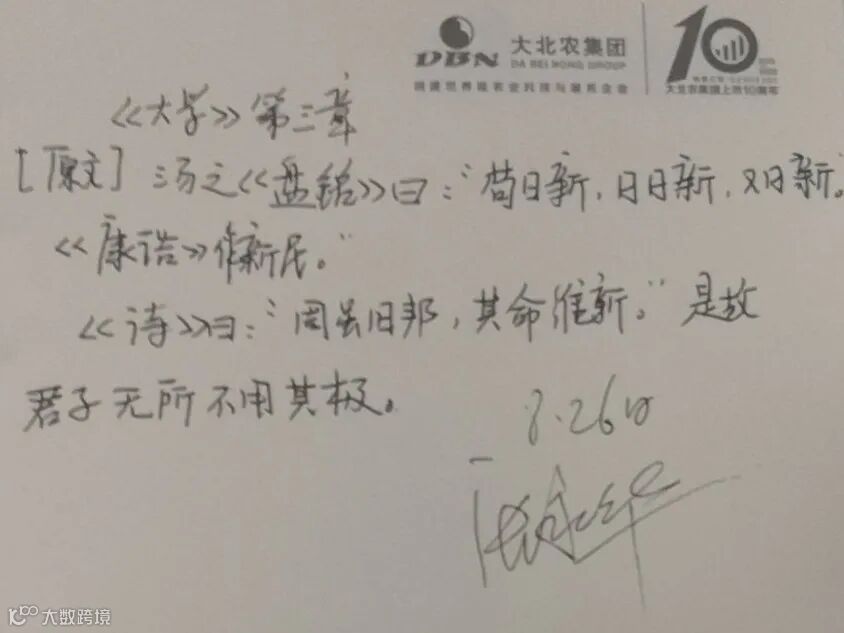 DBN 大北农集团
DA BEI NONG GROUP
10
大北农集团上市10周年
《大学》第三章
[原文] 汤之《盘铭》曰：“苟日新，日日新，又日新。
《康诰》作新民。”
《诗》曰：“周虽旧邦，其命维新。”是故
君子无所不用其极。
8.26日
大数跨境